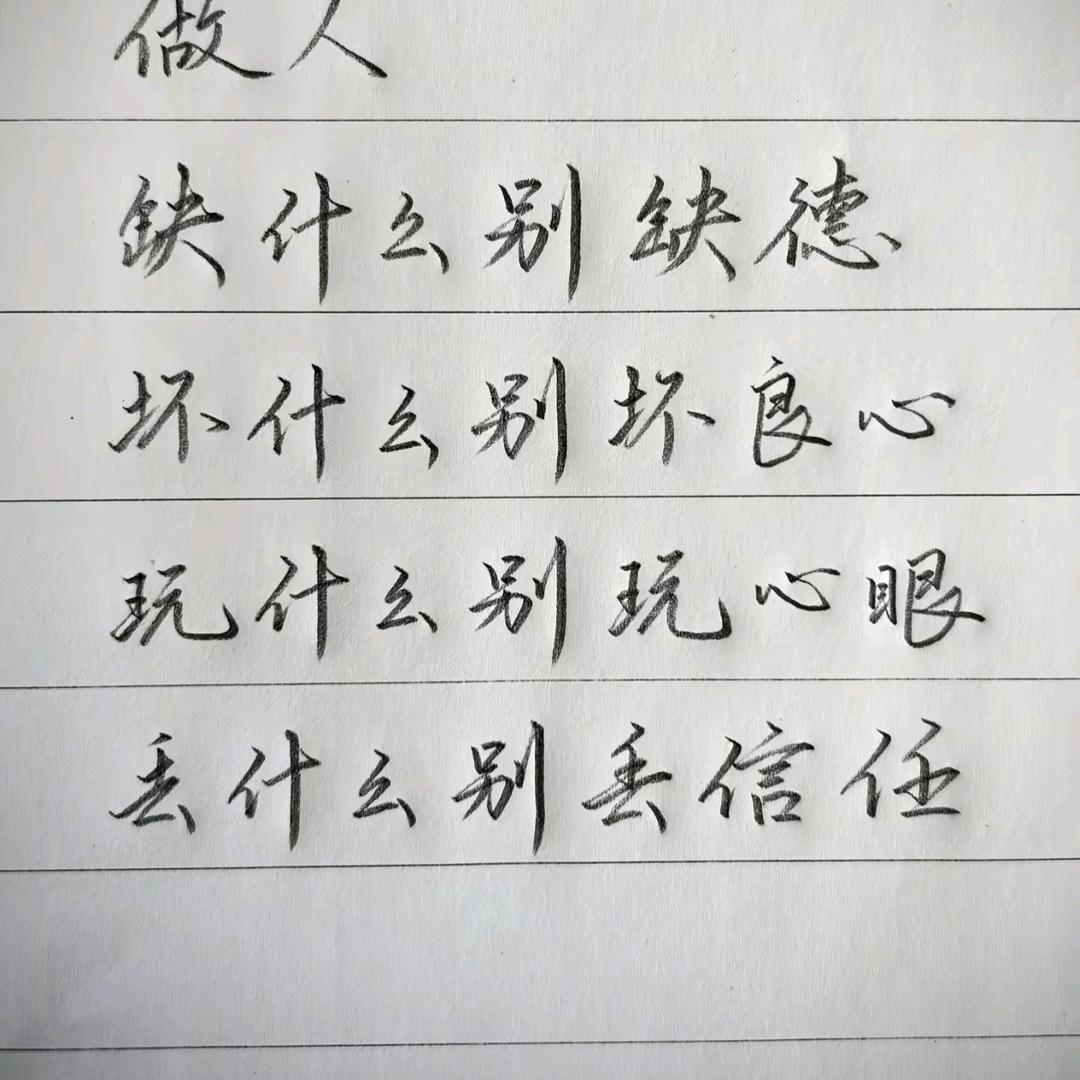 做人
缺什么别缺德
坏什么别坏良心
玩什么别玩心眼
丢什么别丢信任